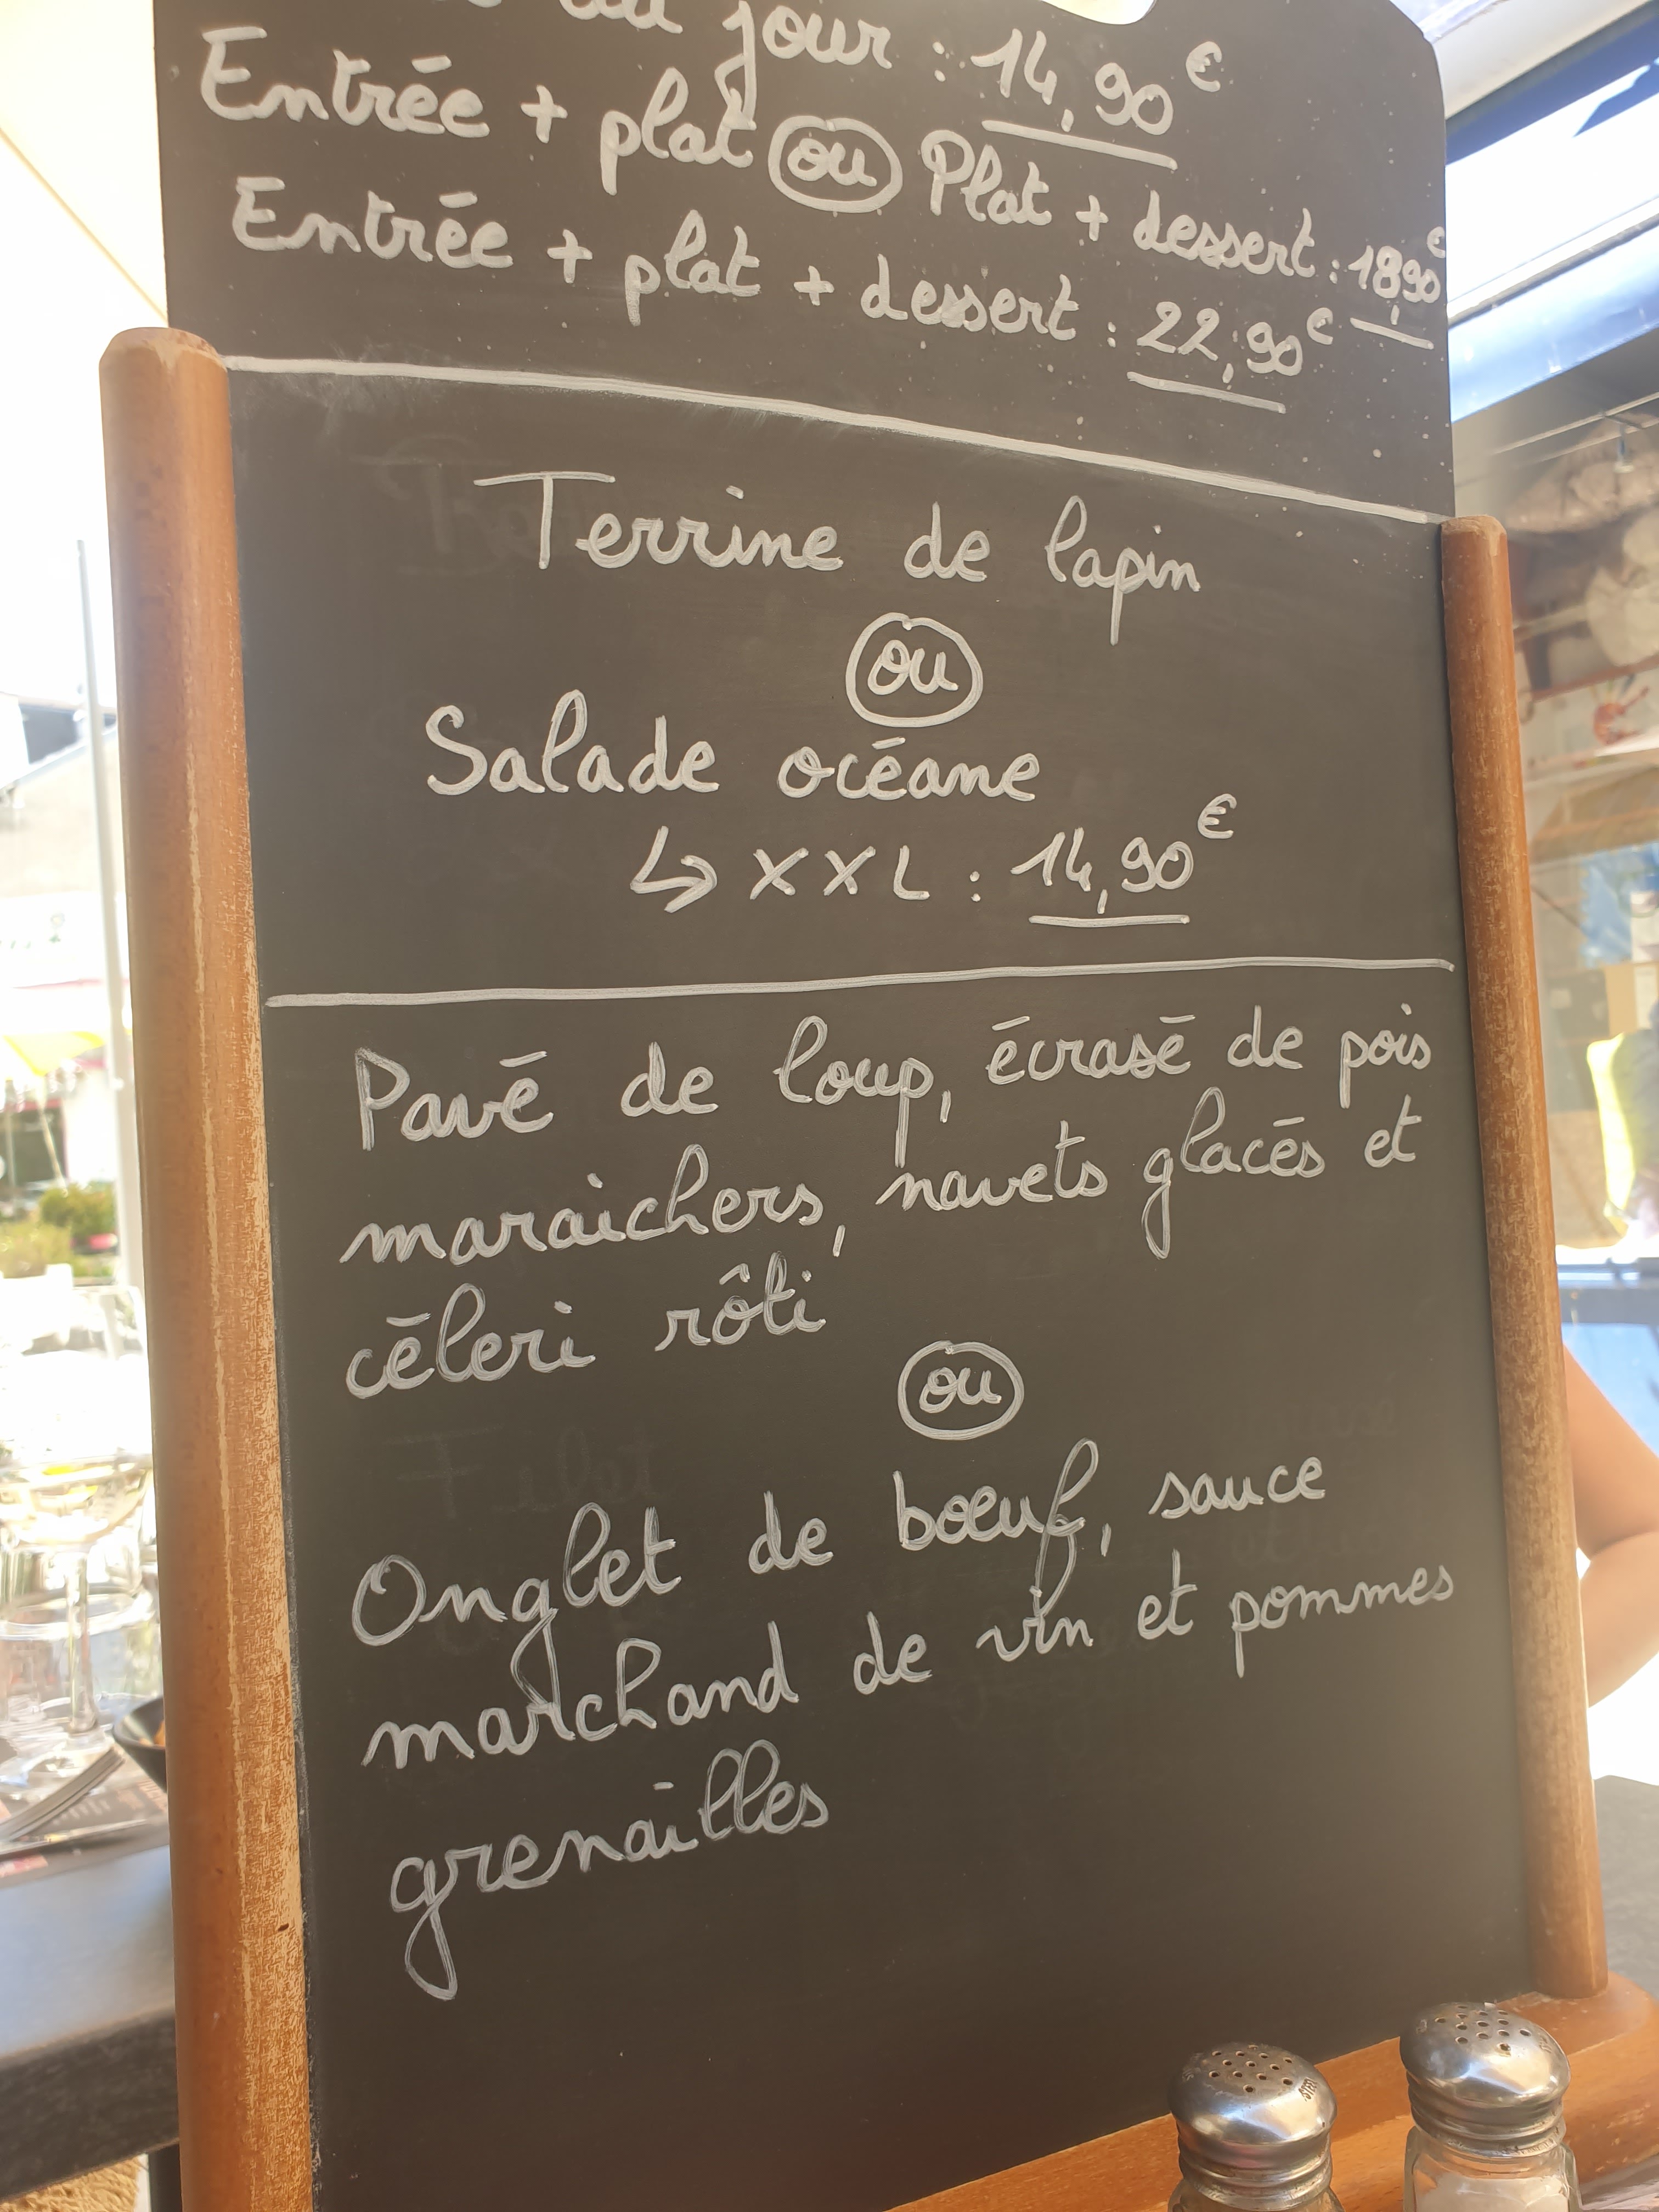 du jour : 14,90€
Entrée + plat ou Plat + dessert : 18,90€
Entrée + plat + dessert : 22,90€
Terrine de lapin
ou
Salade océane
↳ XXL : 14,90€
Pavé de loup, écrasé de pois
maraichers, navets glacés et
céleri rôti
ou
Onglet de bœuf, sauce
marchand de vin et pommes
grenailles